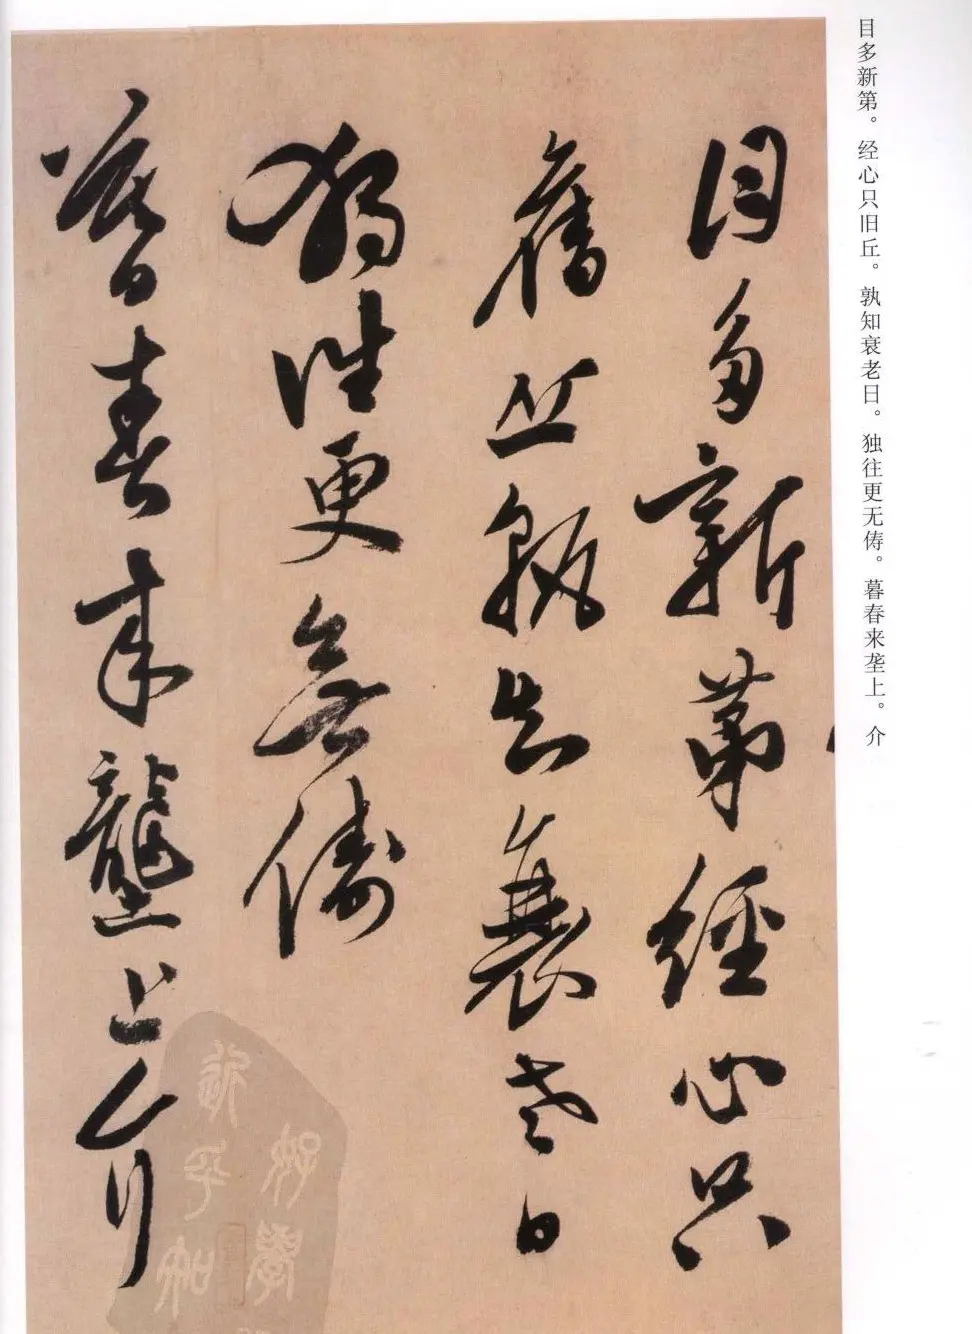 目多新第。经心只旧丘。孰知衰老日。独往更无俦。暮春来垄上。介
目多新苐經心只
舊丘孰知衰老日
獨往更無儔
暮春来壟上介
好學
近乎知